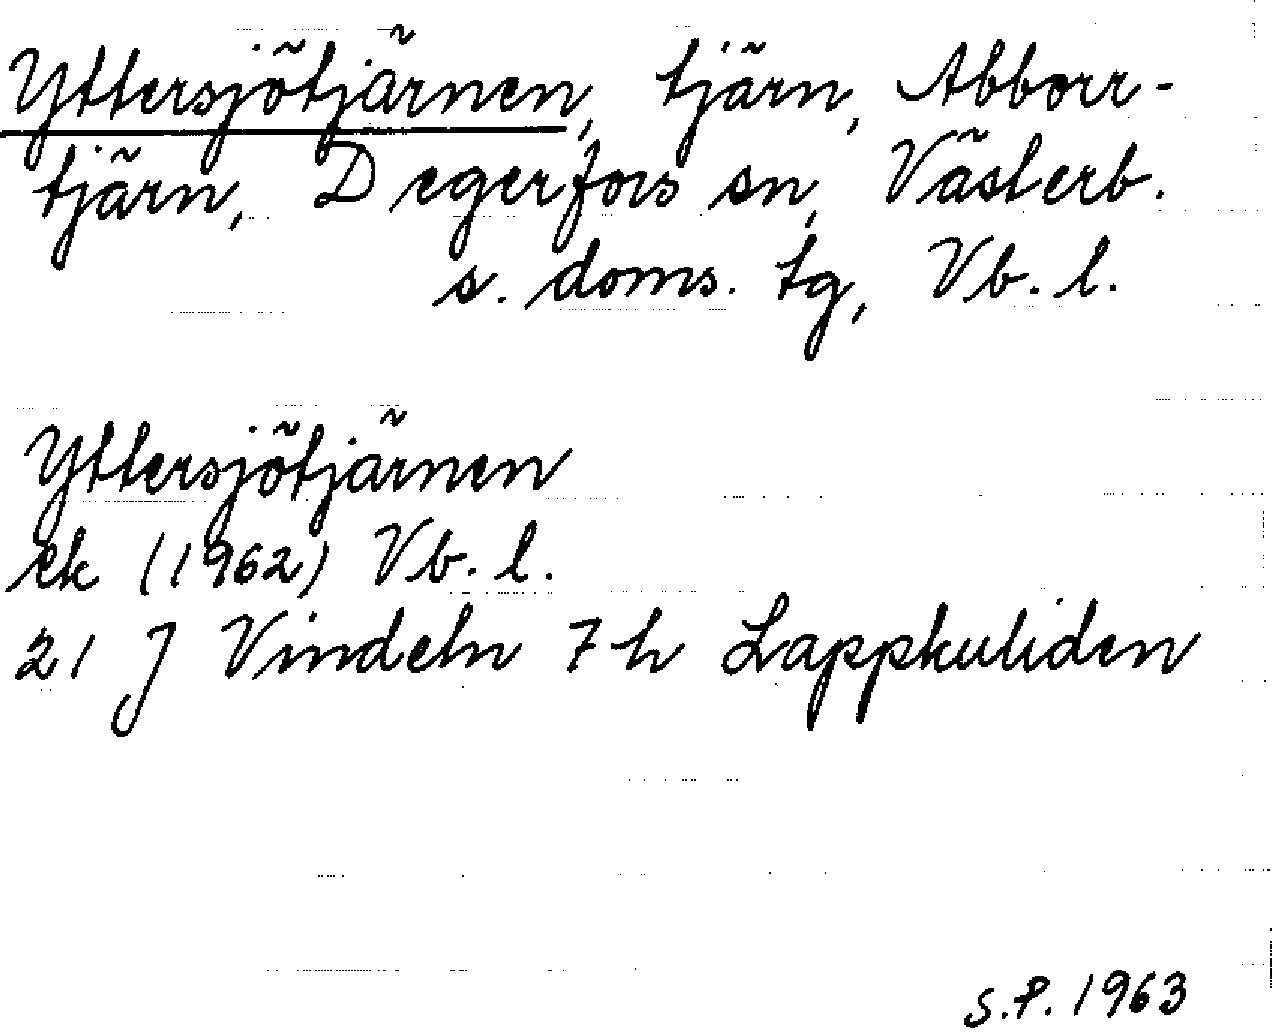 Yttersjötjärnen, tjärn, Abborr-
tjärn, Degerfors sn, Västerb.
s. doms. tg, Vb. l.
Yttersjötjärnen
ek (1962) Vb. l.
21 J Vindeln 7 h Lappkuliden
S.P. 1963